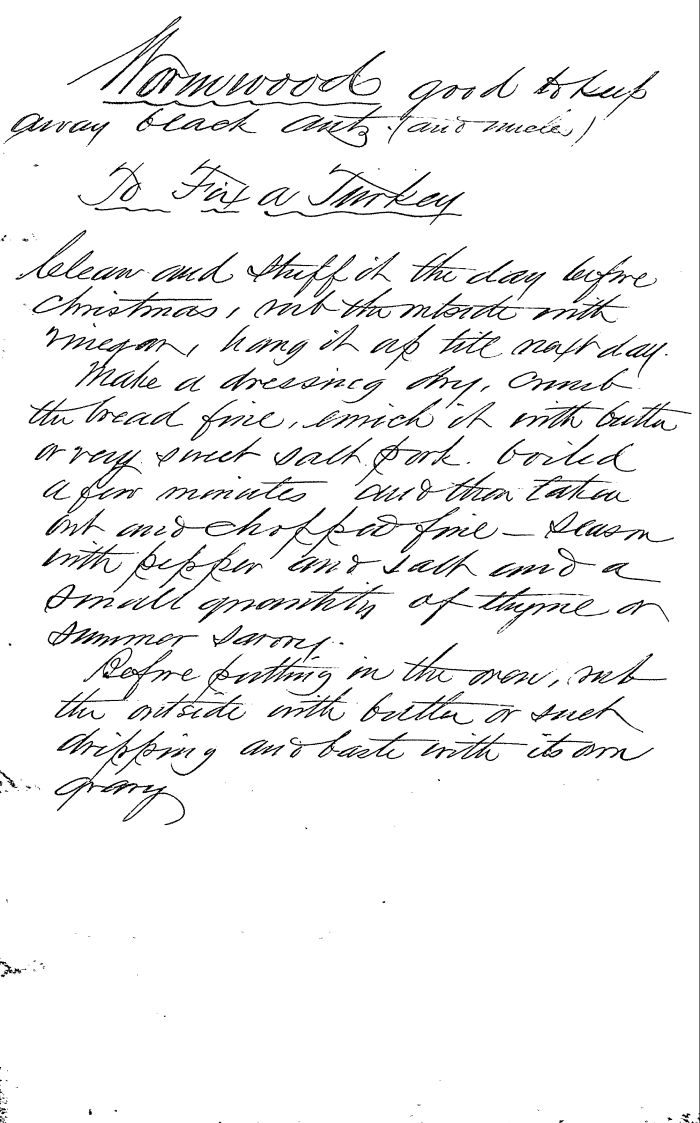 Wormwood good to keep
away black ants. (and uncle)
To Fix a Turkey
Clean and stuff it the day before
Christmas, rub the outside with
vinegar, hang it up till next day.
Make a dressing dry, crumb
the bread fine, enrich it with butter
or very sweet salt pork. boiled
a few minutes and then taken
out and chopped fine — season
with pepper and salt and a
small quantity of thyme or
summer savory.
Before putting in the oven, rub
the outside with butter or such
dripping and baste with its own
gravy